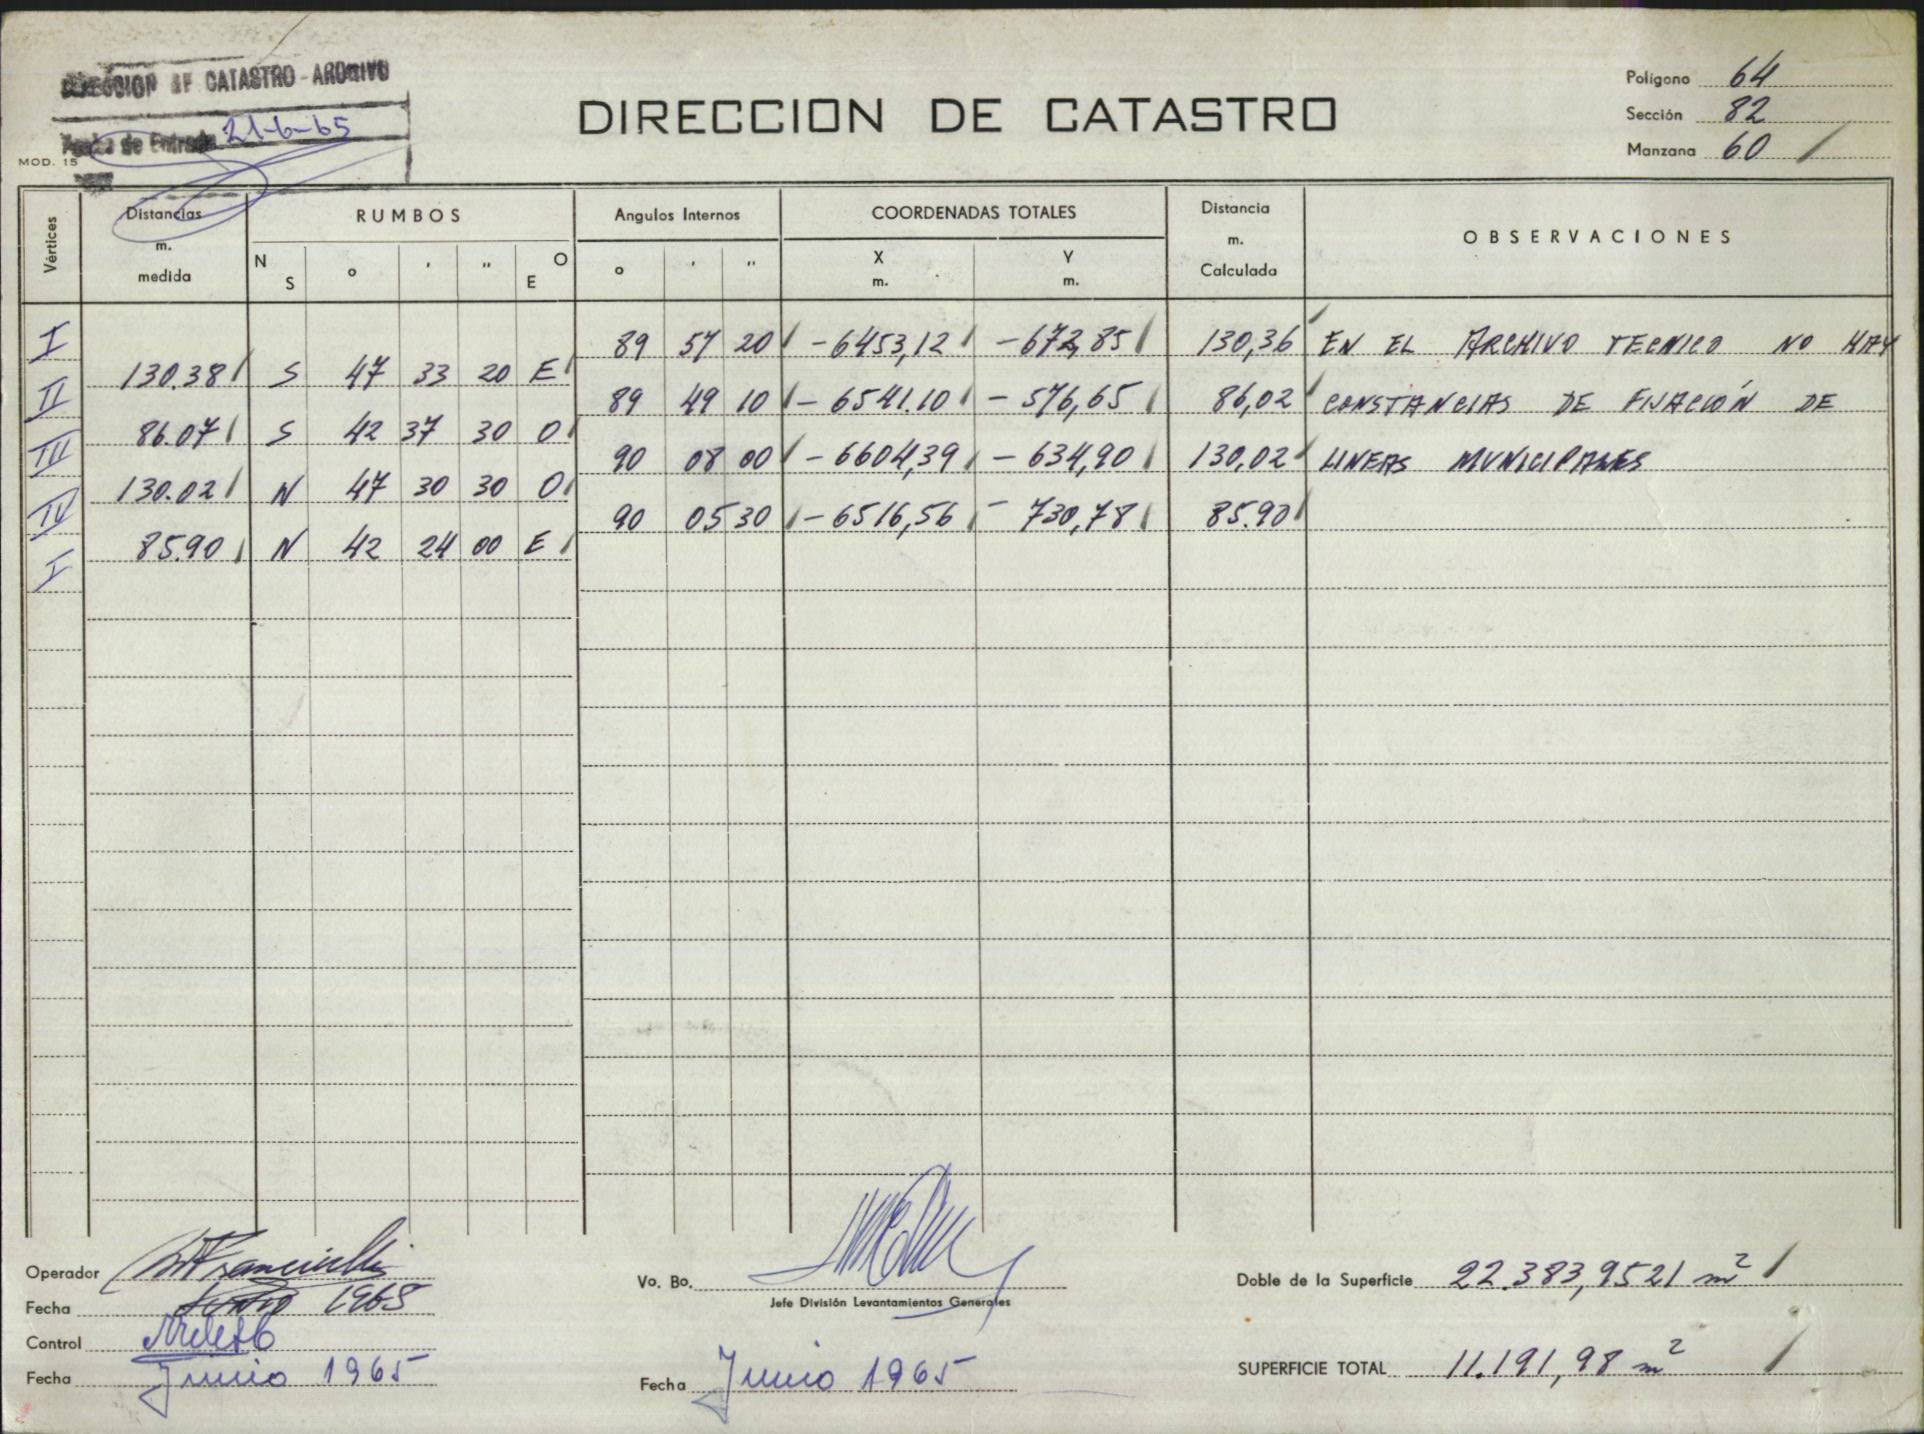 DIRECCION DE CATASTRO - ARCHIVO
Fecha de Entrada 21-6-65
MOD. 15
DIRECCION DE CATASTRO
Polígono 64
Sección 82
Manzana 60
Vértices Distancias m. medida RUMBOS Angulos Internos COORDENADAS TOTALES Distancia m. Calculada OBSERVACIONES
N S o ' '' O E o ' '' X m. Y m.
I 89 57 20 -6453,12 -672,85 130,36 EN EL ARCHIVO TECNICO NO HAY
130.38 S 47 33 20 E
II 89 49 10 -6541.10 -576,65 86,02 CONSTANCIAS DE FIJACIÓN DE
86.07 S 42 37 30 O
III 90 08 00 -6604,39 -634,90 130,02 LINEAS MUNICIPALES
130.02 N 47 30 30 O
IV 90 05 30 -6516,56 -730,78 85.90
85.90 N 42 24 00 E
I
Operador
Fecha 1965
Control
Fecha Junio 1965
Vo. Bo.
Jefe División Levantamientos Generales
Fecha Junio 1965
Doble de la Superficie 22.383,9521 m²
SUPERFICIE TOTAL 11.191,98 m²